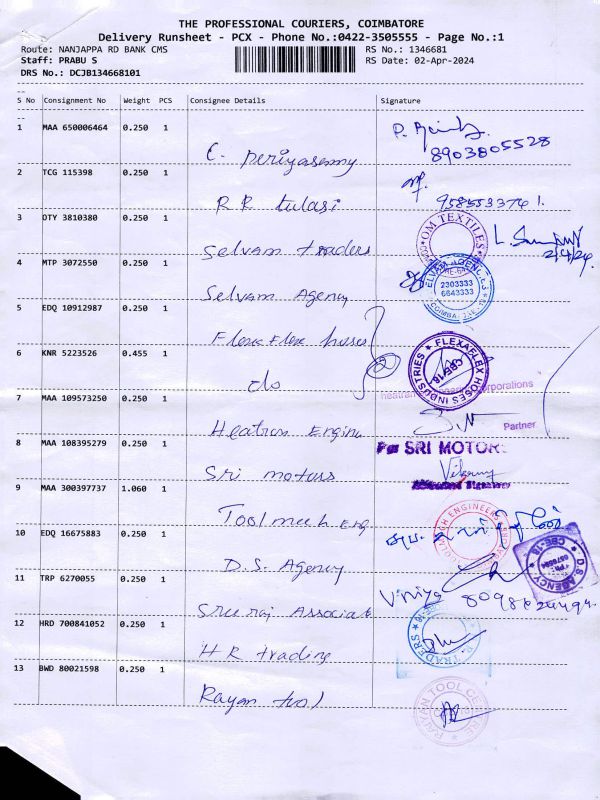 THE PROFESSIONAL COURIERS, COIMBATORE
Delivery Runsheet - PCX - Phone No.:0422-3505555 - Page No.:1
Route: NANJAPPA RD BANK CMS
RS No.: 1346681
Staff: PRABU S
RS Date: 02-Apr-2024
DRS No.: DCJB134668101
S No Consignment No Weight PCS Consignee Details Signature
1 MAA 650006464 0.250 1
8903805528
C. Periyasamy
2 TCG 115398 0.250 1
RR tulasi
3 OTY 3810380 0.250 1
OM TEXTILES
2/4/24.
Selvam traders
4 MTP 3072550 0.250 1
ELVAM AGENCIES
2303333
6643333
Selvam Agency
5 EDQ 10912987 0.250 1
Flexa Flex hoses
6 KNR 5223526 0.455 1
FLEXAFLEX HOSES INDUSTRIES
CBE-18
do
7 MAA 109573250 0.250 1
Partner
Heatran Engine
8 MAA 108395279 0.250 1
For SRI MOTORS
Sri motors
9 MAA 300397737 1.060 1
Toolmech Eng
10 EDQ 16675883 0.250 1
D.S. AGENCY
CBE-18
D.S. Agency
11 TRP 6270055 0.250 1
Sree raj Associat
12 HRD 700841052 0.250 1
TRADERS
HR trading
13 BWD 80021598 0.250 1
RAYAN TOOL CENTRE
Rayan tool